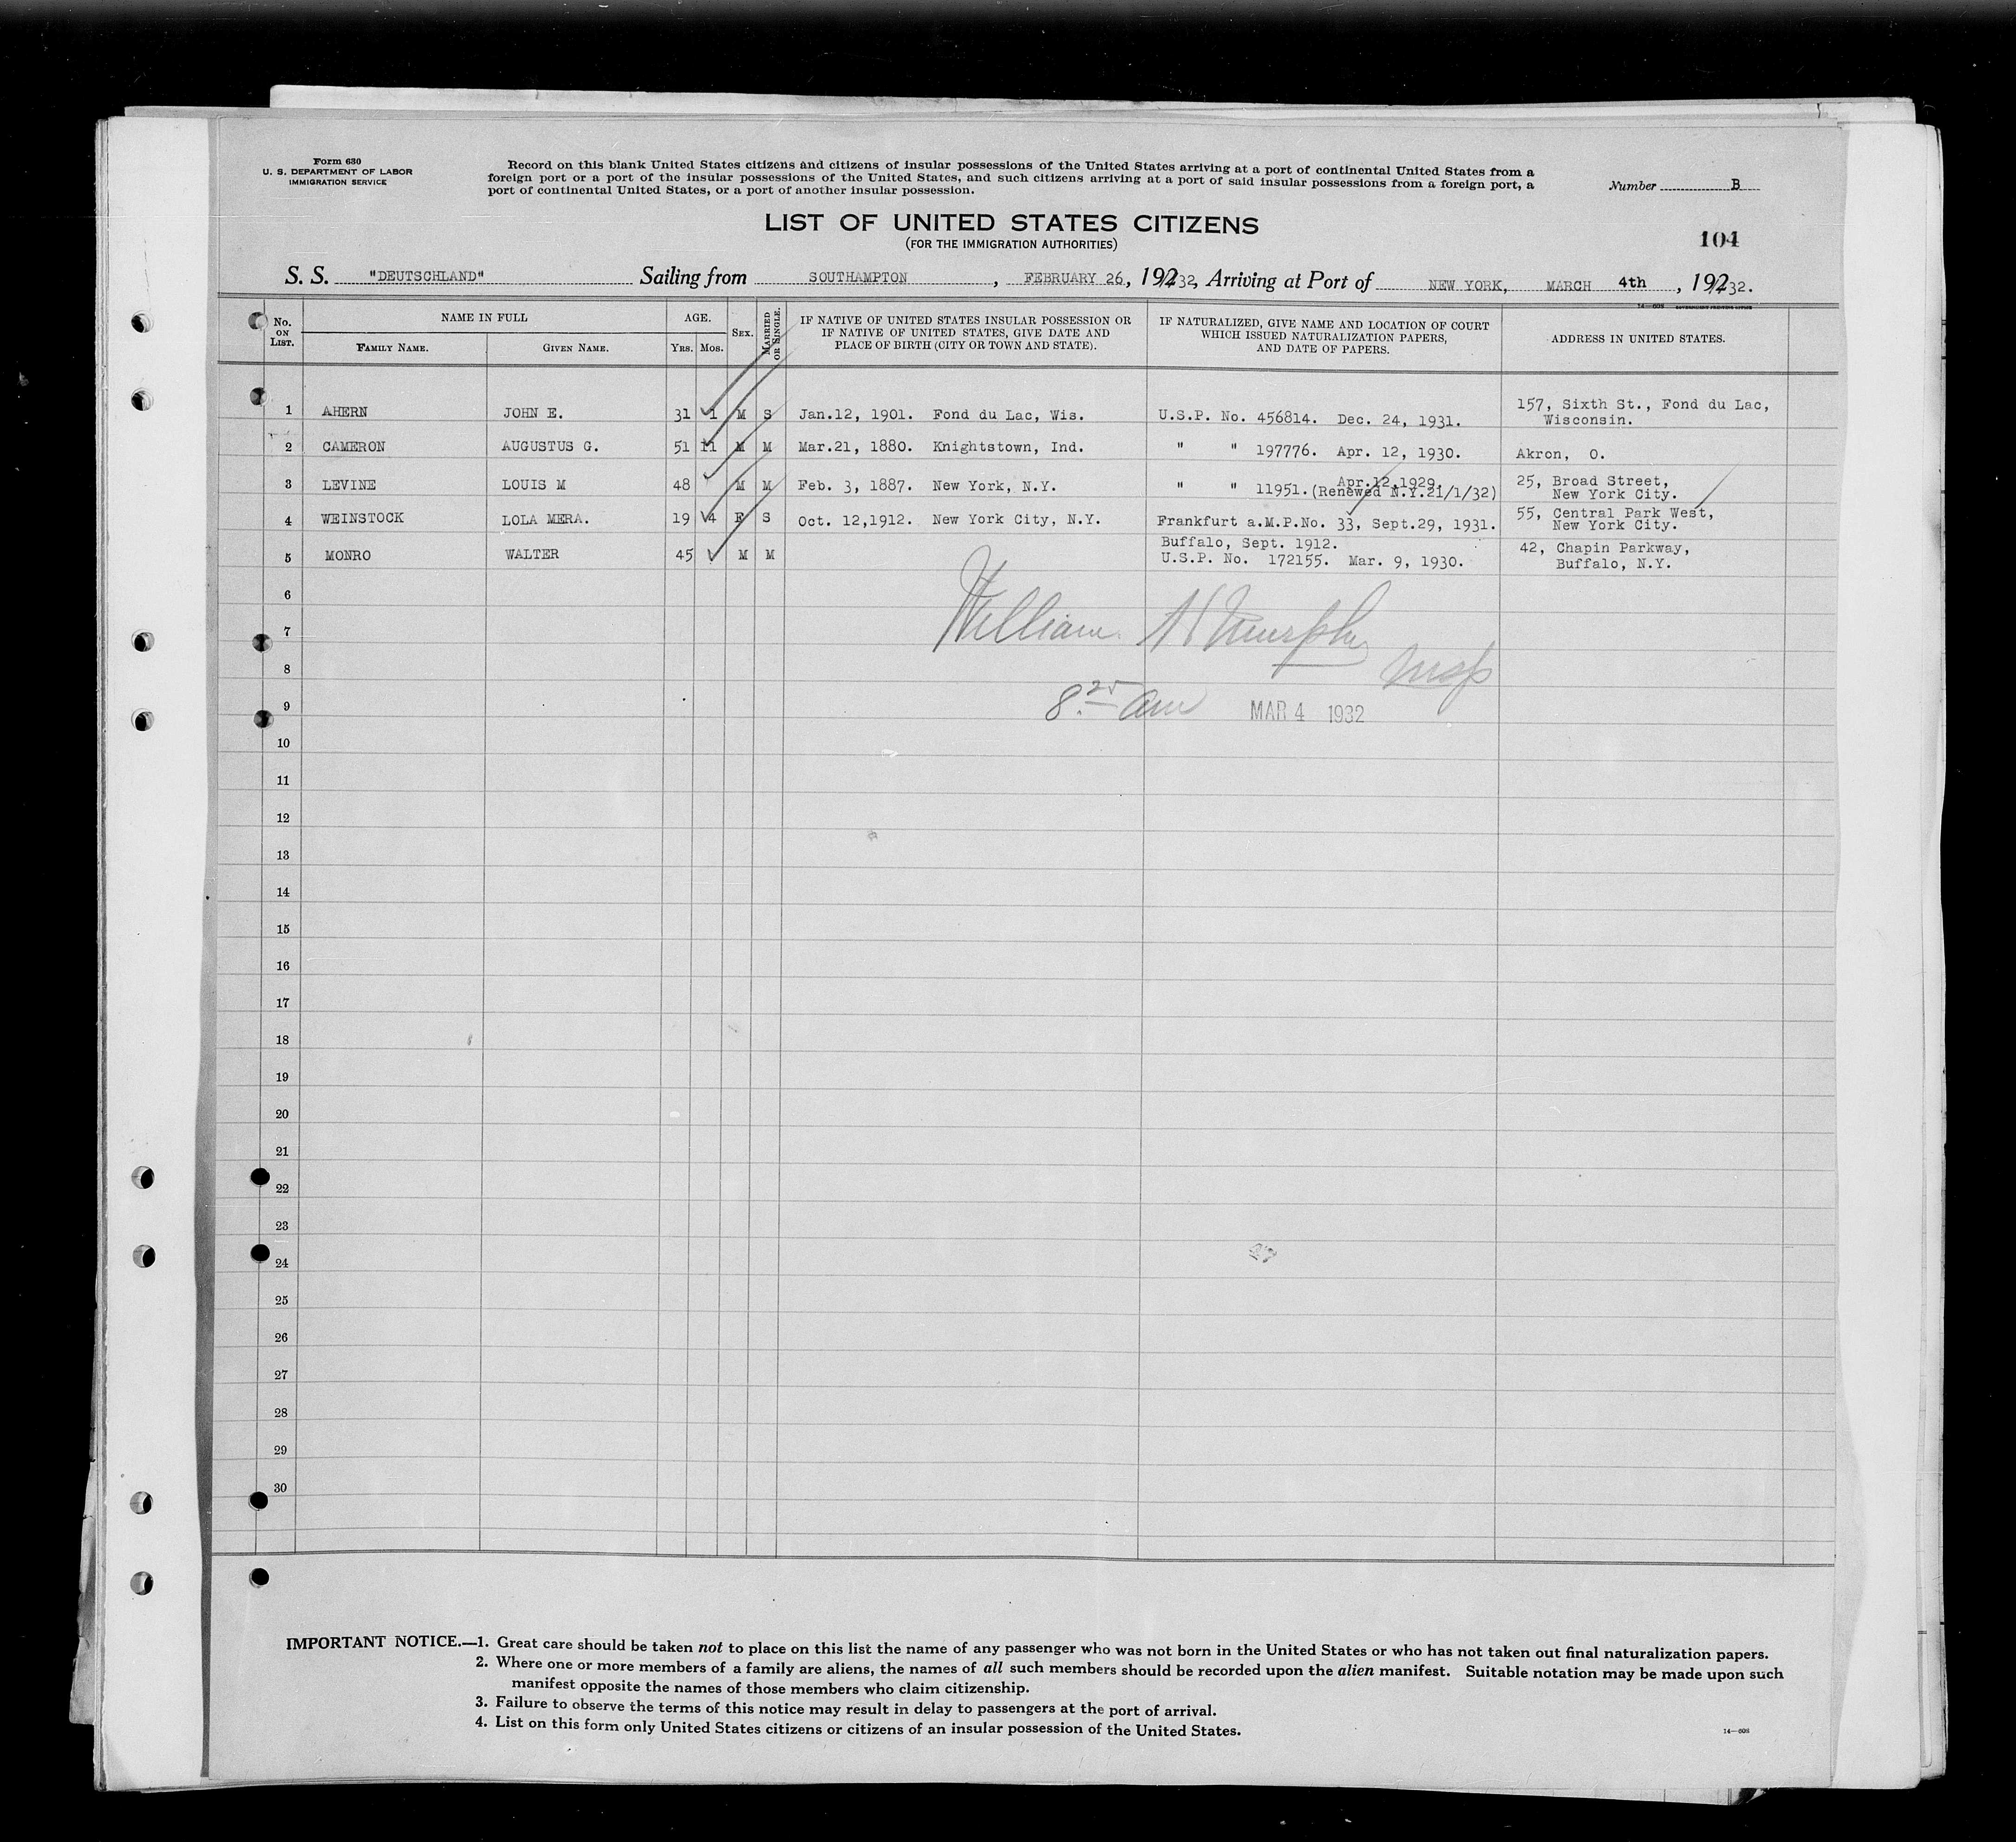 Form 630
U. S. DEPARTMENT OF LABOR
IMMIGRATION SERVICE
Record on this blank United States citizens and citizens of insular possessions of the United States arriving at a port of continental United States from a
foreign port or a port of the insular possessions of the United States, and such citizens arriving at a port of said insular possessions from a foreign port, a
port of continental United States, or a port of another insular possession.
Number B
LIST OF UNITED STATES CITIZENS
(FOR THE IMMIGRATION AUTHORITIES)
104
S. S. "DEUTSCHLAND" Sailing from SOUTHAMPTON, FEBRUARY 26, 19232, Arriving at Port of NEW YORK, MARCH 4th, 19232.
14—608 GOVERNMENT PRINTING OFFICE
No. ON LIST. NAME IN FULL AGE. SEX. MARRIED OR SINGLE. IF NATIVE OF UNITED STATES INSULAR POSSESSION OR IF NATIVE OF UNITED STATES, GIVE DATE AND PLACE OF BIRTH (CITY OR TOWN AND STATE). IF NATURALIZED, GIVE NAME AND LOCATION OF COURT WHICH ISSUED NATURALIZATION PAPERS, AND DATE OF PAPERS. ADDRESS IN UNITED STATES.
FAMILY NAME. GIVEN NAME. YRS. MOS.
1 AHERN JOHN E. 31 1 M S Jan.12, 1901. Fond du Lac, Wis. U.S.P. No. 456814. Dec. 24, 1931. 157, Sixth St., Fond du Lac,
Wisconsin.
2 CAMERON AUGUSTUS G. 51 11 M M Mar.21, 1880. Knightstown, Ind. " " 197776. Apr. 12, 1930. Akron, O.
Apr.12,1929.
3 LEVINE LOUIS M 48 M M Feb. 3, 1887. New York, N.Y. " " 11951.(Renewed N.Y.21/1/32) 25, Broad Street,
New York City.
4 WEINSTOCK LOLA MERA. 19 4 F S Oct. 12,1912. New York City, N.Y. Frankfurt a.M.P.No. 33, Sept.29, 1931. 55, Central Park West,
New York City.
Buffalo, Sept. 1912.
5 MONRO WALTER 45 M M U.S.P. No. 172155. Mar. 9, 1930. 42, Chapin Parkway,
Buffalo, N.Y.
6
William H Murphy
7
8
8.25 am MAR 4 1932
9
10
11
12
13
14
15
16
17
18
19
20
21
22
23
24
25
26
27
28
29
30
IMPORTANT NOTICE.—1. Great care should be taken not to place on this list the name of any passenger who was not born in the United States or who has not taken out final naturalization papers.
2. Where one or more members of a family are aliens, the names of all such members should be recorded upon the alien manifest. Suitable notation may be made upon such
manifest opposite the names of those members who claim citizenship.
3. Failure to observe the terms of this notice may result in delay to passengers at the port of arrival.
4. List on this form only United States citizens or citizens of an insular possession of the United States.
14—608